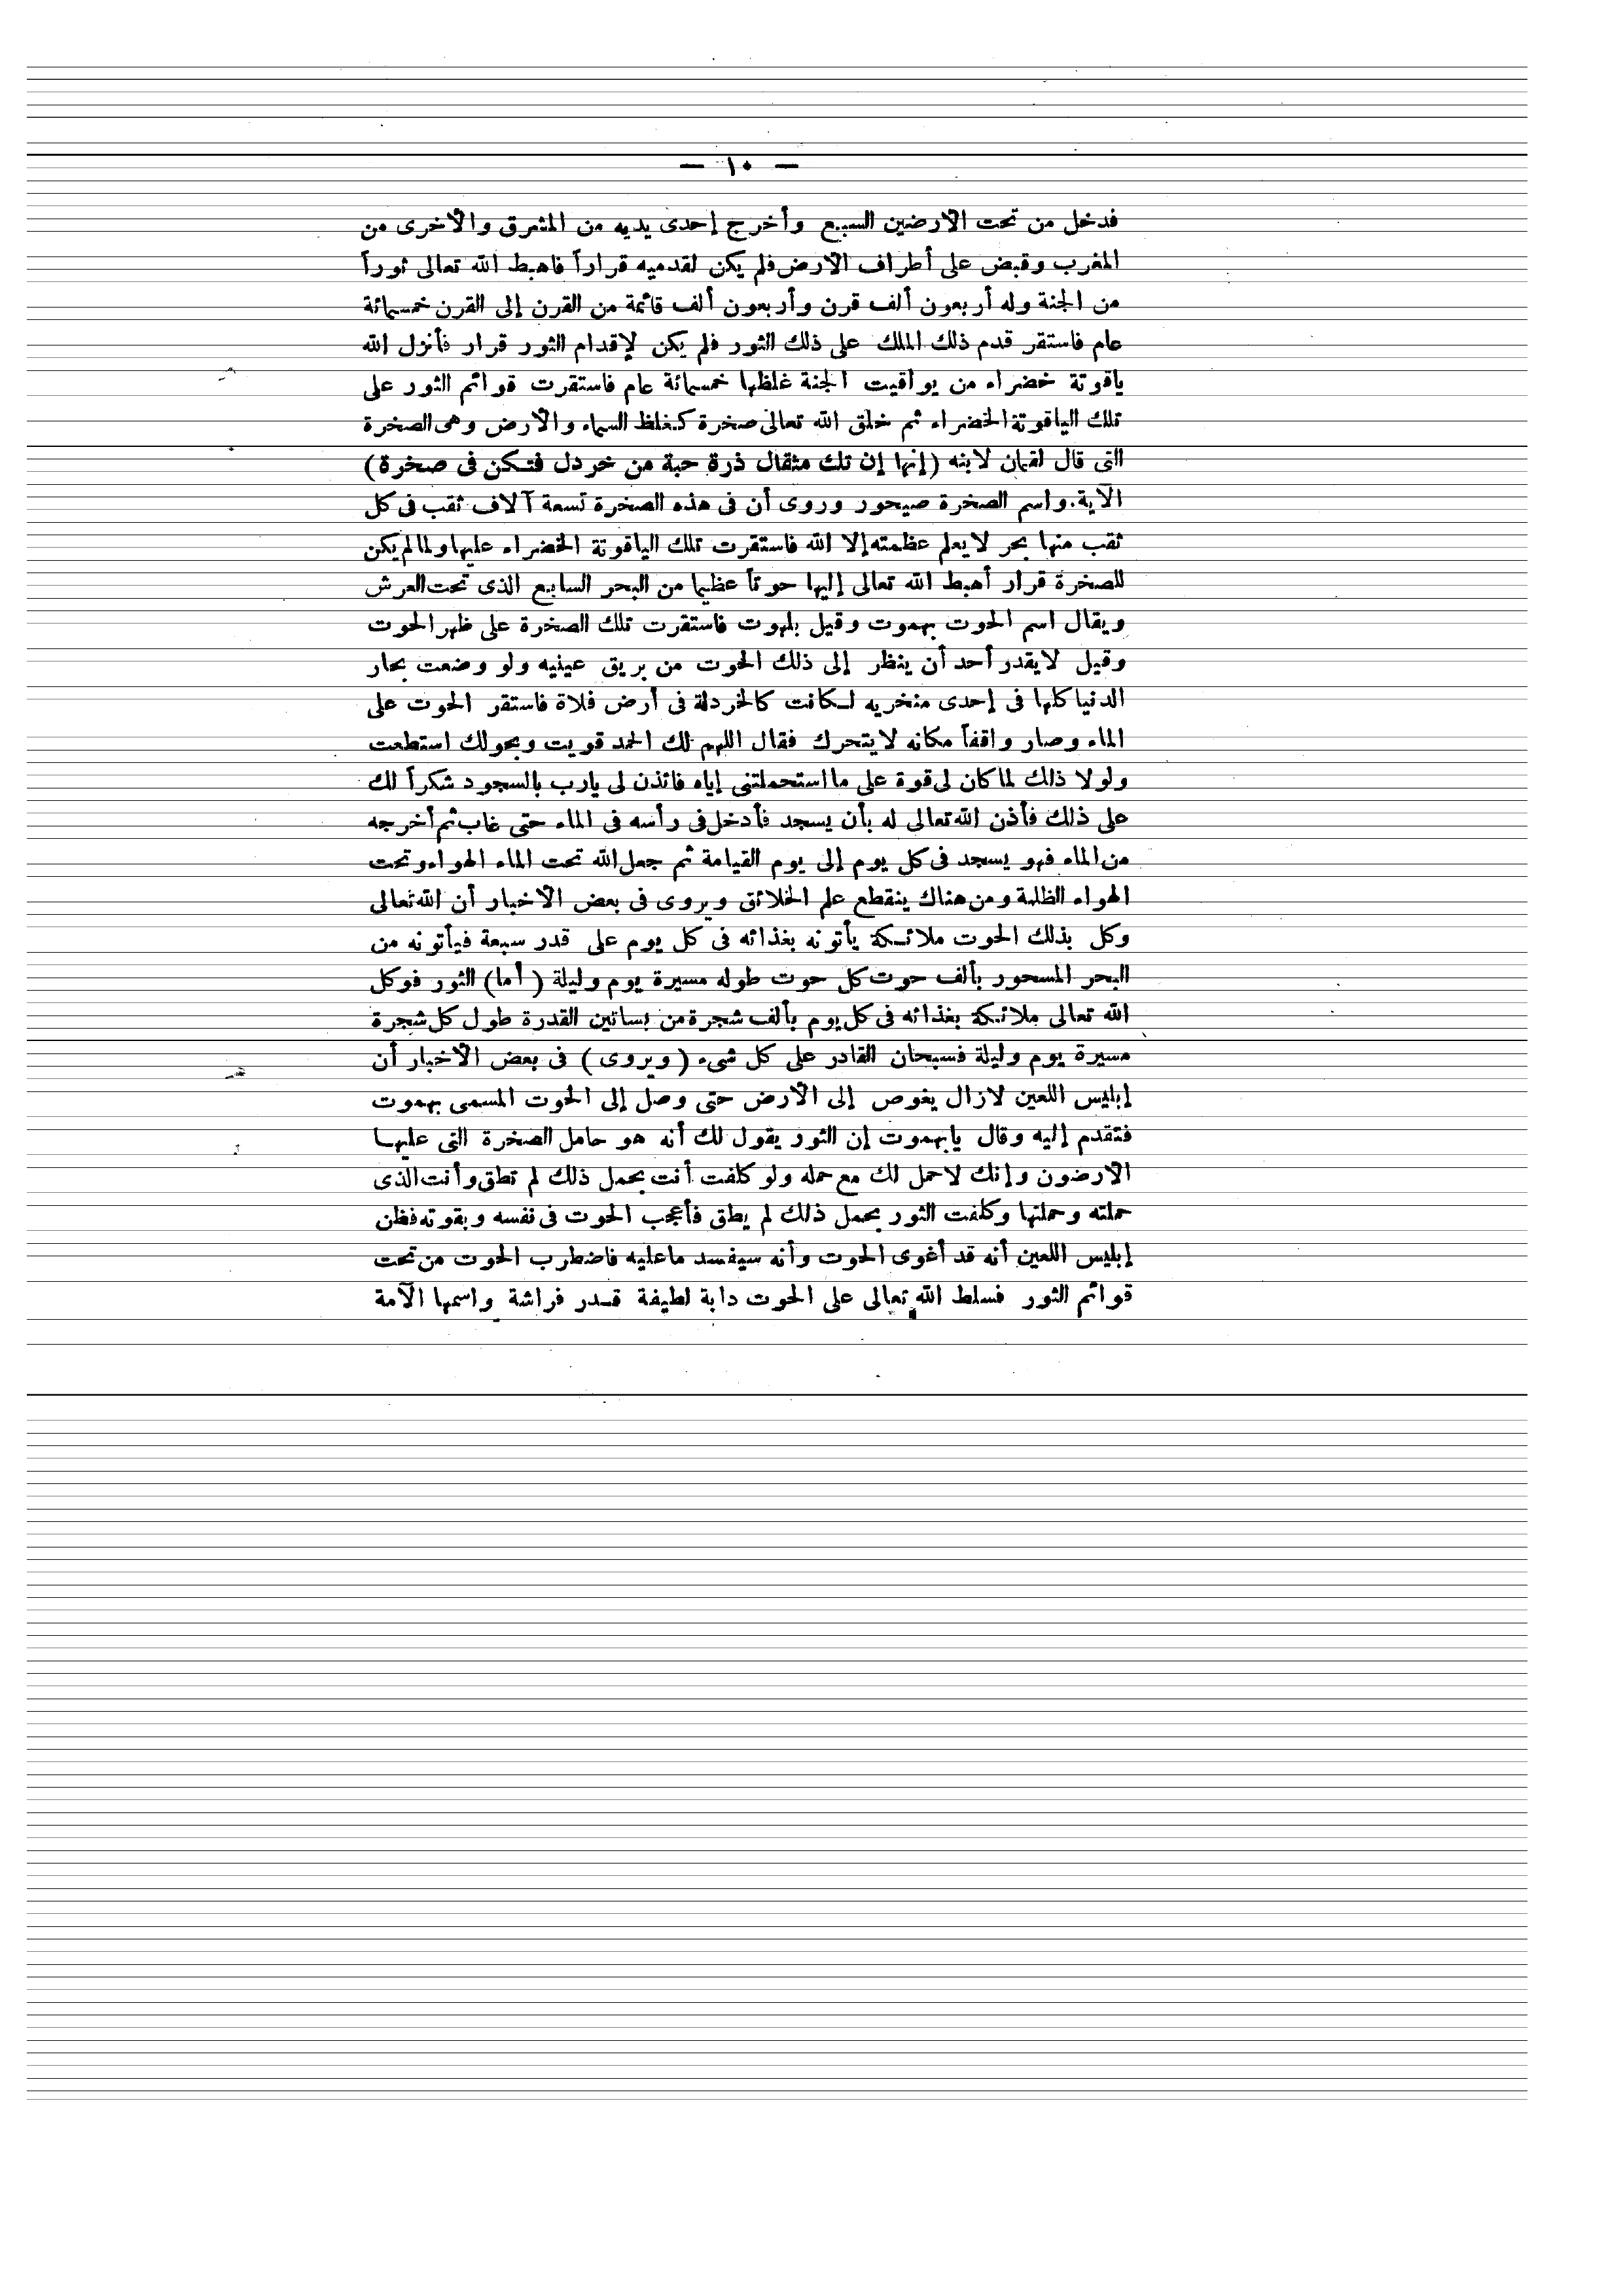 — ١٠ —
فدخل من تحت الارضين السبع وأخرج إحدى يديه من المشرق والأخرى من
المغرب وقبض على أطراف الارض فلم يكن لقدميه قراراً فاهبط الله تعالى ثوراً
من الجنة وله أربعون ألف قرن وأربعون ألف قائمة من القرن إلى القرن خمسمائة
عام فاستقر قدم ذلك الملك على ذلك الثور فلم يكن لإقدام الثور قرار فأنزل الله
ياقوتة خضراء من يواقيت الجنة غلظها خمسمائة عام فاستقرت قوائم الثور على
تلك الياقوتة الخضراء ثم خلق الله تعالى صخرة كغلظ السماء والارض وهى الصخرة
التى قال لقمان لابنه (إنها إن تك مثقال ذرة حبة من خردل فتكن فى صخرة)
الآية. واسم الصخرة صيحور وروى أن فى هذه الصخرة تسعة آلاف ثقب فى كل
ثقب منها بحر لا يعلم عظمته إلا الله فاستقرت تلك الياقوتة الخضراء عليها ولما لم يكن
للصخرة قرار أهبط الله تعالى إليها حوتاً عظيما من البحر السابع الذى تحت العرش
ويقال اسم الحوت بهموت وقيل بلهوت فاستقرت تلك الصخرة على ظهر الحوت
وقيل لا يقدر أحد أن ينظر إلى ذلك الحوت من بريق عينيه ولو وضعت بحار
الدنيا كلها فى إحدى منخريه لكانت كالخردلة فى أرض فلاة فاستقر الحوت على
الماء وصار واقفاً مكانه لا يتحرك فقال اللهم لك الحمد قويت وبحولك استطعت
ولولا ذلك لما كان لى قوة على ما استحملتنى إياه فائذن لى يارب بالسجود شكراً لك
على ذلك فأذن الله تعالى له بأن يسجد فأدخل فى رأسه فى الماء حتى غاب ثم أخرجه
من الماء فهو يسجد فى كل يوم إلى يوم القيامة ثم جعل الله تحت الماء الهواء وتحت
الهواء الظلمة ومن هناك ينقطع علم الخلائق ويروى فى بعض الاخبار أن الله تعالى
وكل بذلك الحوت ملائكة يأتونه بغذائه فى كل يوم على قدر سبعة فيأتونه من
البحر المسحور بألف حوت كل حوت طوله مسيرة يوم وليلة (أما) الثور فوكل
الله تعالى ملائكة بغذائه فى كل يوم بألف شجرة من بساتين القدرة طول كل شجرة
مسيرة يوم وليلة فسبحان القادر على كل شىء (ويروى) فى بعض الاخبار أن
إبليس اللعين لازال يغوص إلى الأرض حتى وصل إلى الحوت المسمى بهموت
فتقدم إليه وقال يابهموت إن الثور يقول لك أنه هو حامل الصخرة التى عليها
الارضون وإنك لاحمل لك مع حمله ولو كلفت أنت بحمل ذلك لم تطق وأنت الذى
حملته وحملتها وكلفت الثور بحمل ذلك لم يطق فأعجب الحوت فى نفسه وبقوته فظن
إبليس اللعين أنه قد أغوى الحوت وأنه سيفسد ماعليه فاضطرب الحوت من تحت
قوائم الثور فسلط الله تعالى على الحوت دابة لطيفة قدر فراشة واسمها الآمة